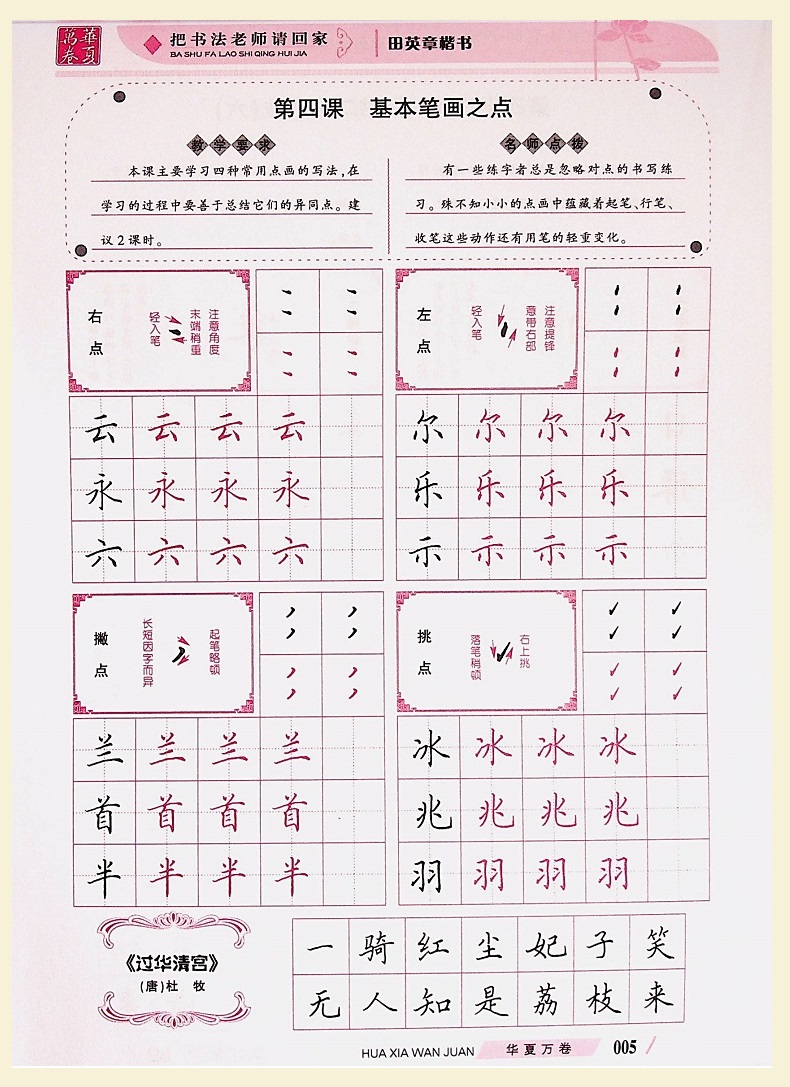 華夏萬卷
把书法老师请回家
BA SHU FA LAO SHI QING HUI JIA
田英章楷书
第四课 基本笔画之点
教学要求
本课主要学习四种常用点画的写法,在
学习的过程中要善于总结它们的异同点。建
议2课时。
名师点拨
有一些练字者总是忽略对点的书写练
习。殊不知小小的点画中蕴藏着起笔、行笔、
收笔这些动作还有用笔的轻重变化。
右点
轻入笔
末端稍重
注意角度
云云云云
永永永永
六六六六
左点
轻入笔
意带右部
注意提锋
尔尔尔尔
乐乐乐乐
示示示示
撇点
长短因字而异
起笔略顿
兰兰兰兰
首首首首
半半半半
挑点
落笔稍顿
右上挑
冰冰冰冰
兆兆兆兆
羽羽羽羽
《过华清宫》
(唐)杜 牧
一骑红尘妃子笑
无人知是荔枝来
HUA XIA WAN JUAN
华夏万卷
005